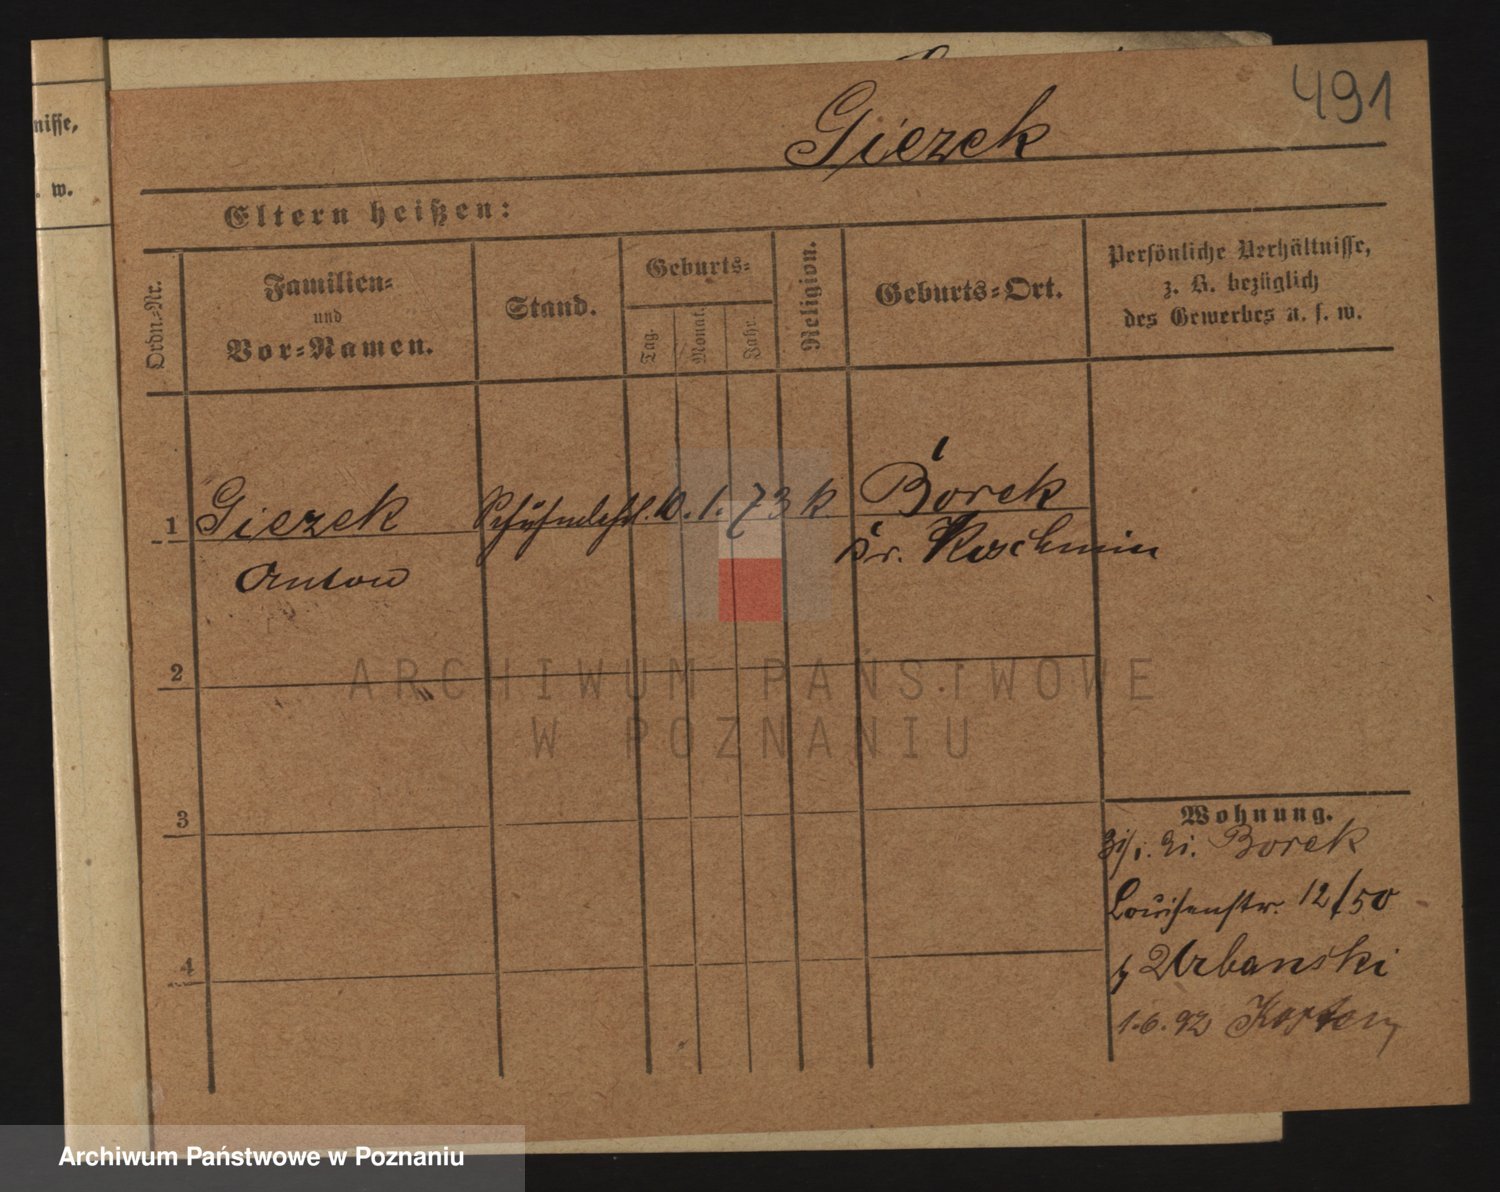 491
Giezek
nisse,
. w.
Eltern heißen:
Ordn.-Nr.
Familien-
und
Vor-Namen.
Stand.
Geburts-
Tag.
Monat.
Jahr.
Religion.
Geburts-Ort.
Persönliche Verhältnisse,
z. B. bezüglich
des Gewerbes u. s. w.
1 Giezek 10. 1. 73 k Borek
Anton Kr. Koschmin
2
3
4
Wohnung.
Borek
Louisenstr. 12/50
Urbanski
1.6.92
ARCHIWUM PAŃSTWOWE
W POZNANIU
Archiwum Państwowe w Poznaniu